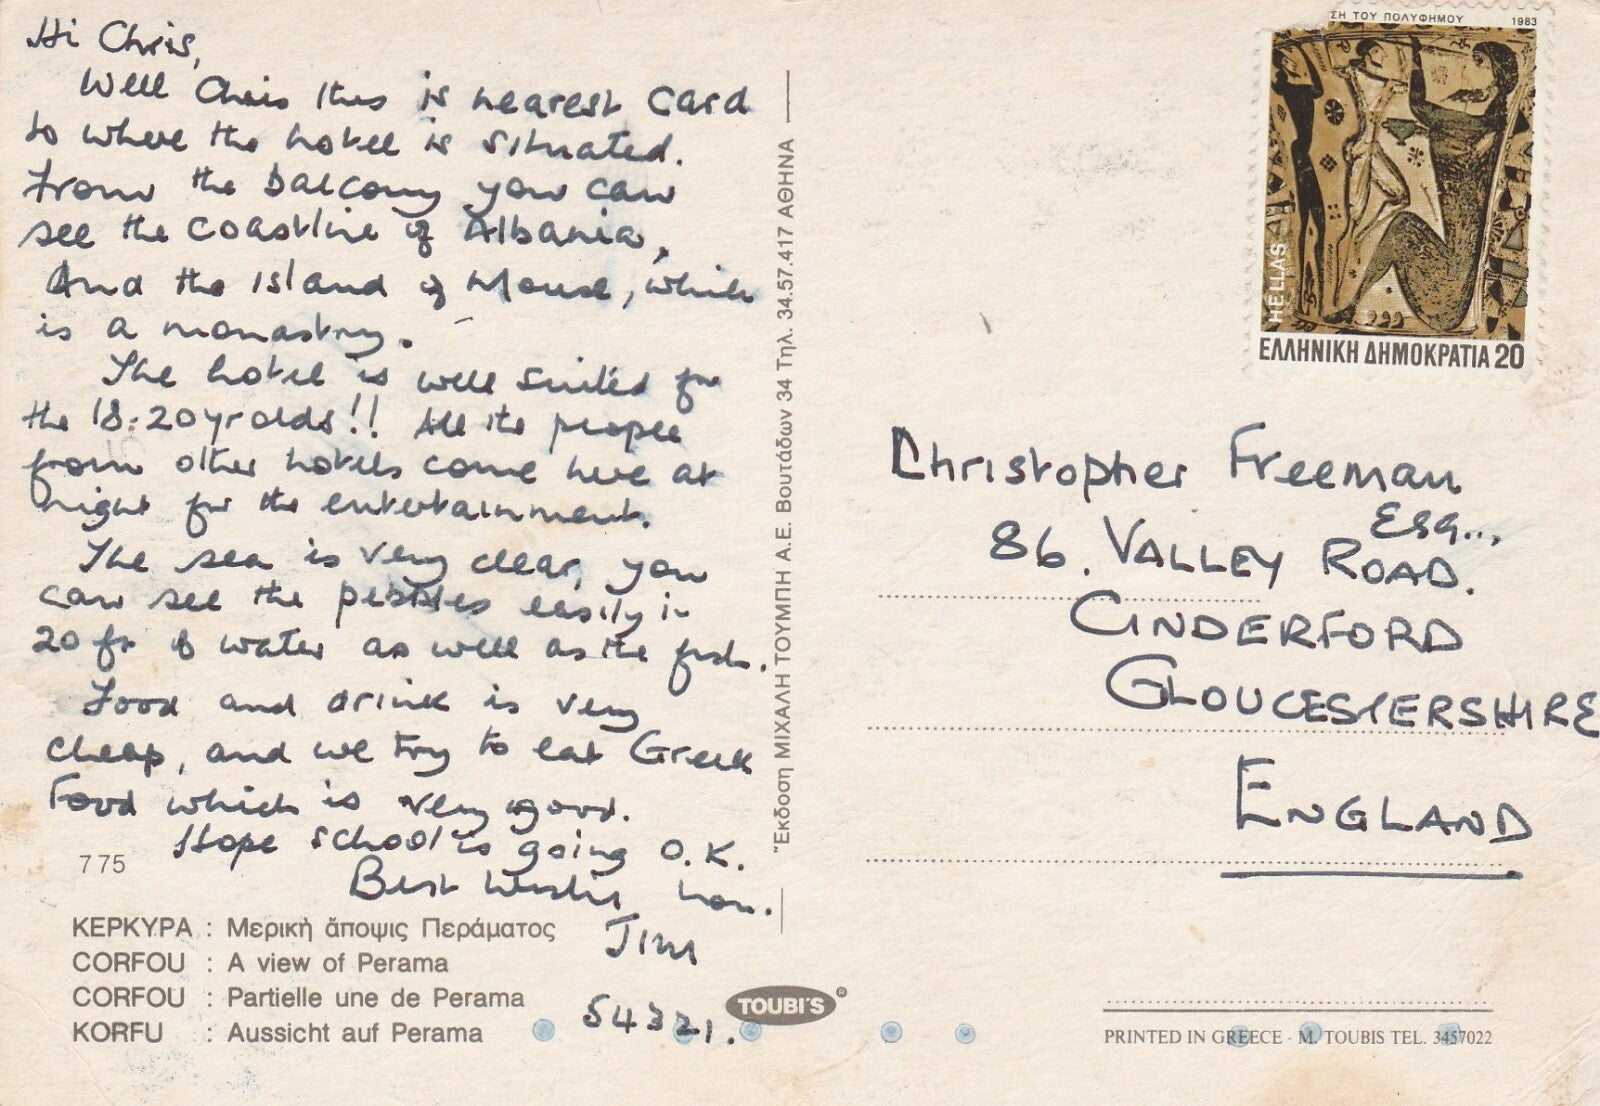 Hi Chris,
Well Chris this is nearest card
to where the hotel is situated.
From the balcony you can
see the coastline of Albania,
And the island of Mouse, which
is a monastry.
The hotel is well suited for
the 18-20yrolds!! All the people
from other hotels come here at
night for the entertainment.
The sea is very clear, you
can see the pebbles easily in
20ft of water as well as the fish.
Food and drink is very
cheap, and we try to eat Greek
Food which is very good.
Hope school is going O.K.
Best Wishes
Jim
54321.
775
ΚΕΡΚΥΡΑ : Μερικὴ ἄποψις Περάματος
CORFOU : A view of Perama
CORFOU : Partielle une de Perama
KORFU : Aussicht auf Perama
Ἔκδοση ΜΙΧΑΛΗ ΤΟΥΜΠΗ Α.Ε. Βουτάδων 34 Τηλ. 34.57.417 ΑΘΗΝΑ
TOUBI'S ®
ΣΗ ΤΟΥ ΠΟΛΥΦΗΜΟΥ 1983
HELLAS
ΕΛΛΗΝΙΚΗ ΔΗΜΟΚΡΑΤΙΑ 20
Christopher Freeman
Esq..,
86. VALLEY ROAD.
CINDERFORD
GLOUCESTERSHIRE
ENGLAND
PRINTED IN GREECE - M. TOUBIS TEL. 3457022